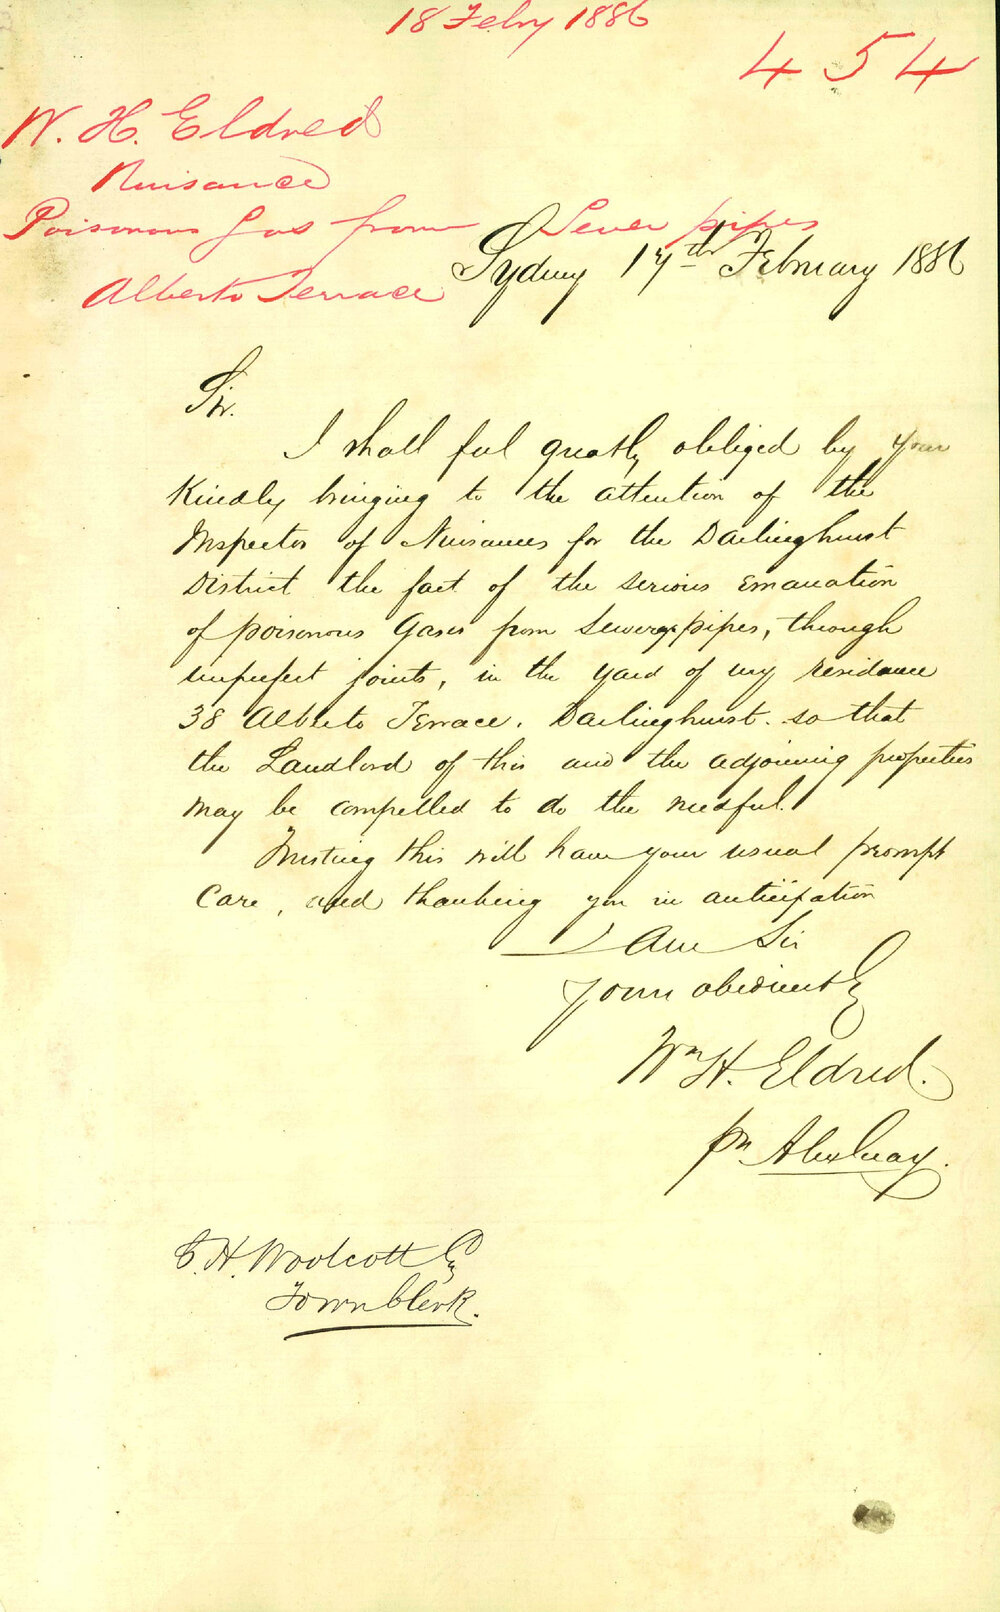 18 Febry 1886
454
W. H. Eldred
Nuisance
Poisonous Gas from Sewer pipes
Alberto Terrace
Sydney 17th February 1886
Sir.
I shall feel greatly obliged by your
Kindly bringing to the attention of the
Inspector of Nuisances for the Darlinghurst
District the fact of the serious emanation
of poisonous Gases from sewerage pipes, through
imperfect joints, in the yard of my residence
38 Alberto Terrace. Darlinghurst. so that
the Landlord of this and the adjoining properties
may be compelled to do the needful.
Trusting this will have your usual prompt
Care, and thanking you in anticipation
I am Sir
Yours obediently
Wm H. Eldred.
pr
C. H. Woolcott Esq
Town Clerk.